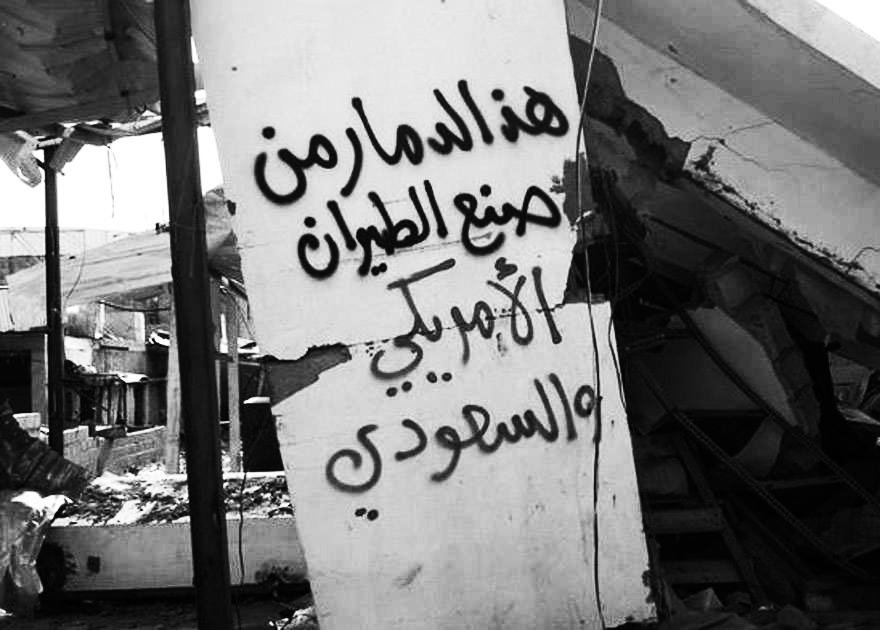 هذا الدمار من
صنع الطيران
الأمريكي
والسعودي